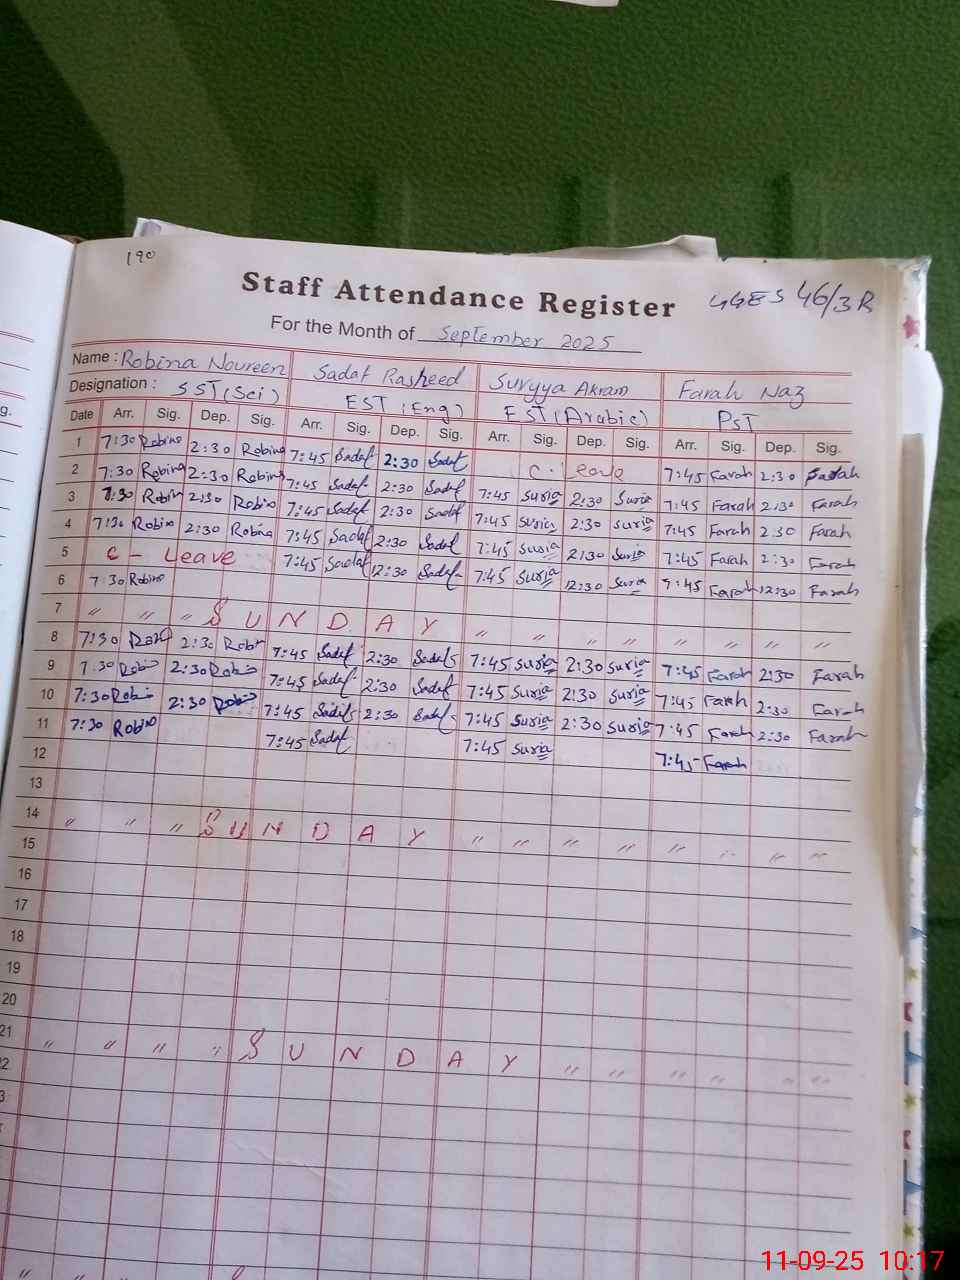 190
Staff Attendance Register GGES 46/3R
For the Month of September 2025
Name : Robina Noureen Sadaf Rasheed Suryya Akram Farah Naz
Designation : SST (Sci) EST (Eng) EST (Arabic) PST
Date Arr. Sig. Dep. Sig. Arr. Sig. Dep. Sig. Arr. Sig. Dep. Sig. Arr. Sig. Dep. Sig.
1 7:30 Robina 2:30 Robina 7:45 Sadaf 2:30 Sadaf C. Leave 7:45 Farah 2:30 Farah
2 7:30 Robina 2:30 Robina 7:45 Sadaf 2:30 Sadaf 7:45 Suria 2:30 Suria 7:45 Farah 2:30 Farah
3 7:30 Robin 2:30 Robin 7:45 Sadaf 2:30 Sadaf 7:45 Suria 2:30 Suria 7:45 Farah 2:30 Farah
4 7:30 Robina 2:30 Robina 7:45 Sadaf 2:30 Sadaf 7:45 Suria 2:30 Suria 7:45 Farah 2:30 Farah
5 C - Leave 7:45 Sadaf 12:30 Sadaf 7:45 Suria 12:30 Suria 7:45 Farah 12:30 Farah
6 7:30 Robina
7 " " " S U N D A Y " " " " " " " "
8 7:30 Robi 2:30 Robi 7:45 Sadaf 2:30 Sadaf 7:45 Suria 2:30 Suria 7:45 Farah 2:30 Farah
9 7:30 Robin 2:30 Robin 7:45 Sadaf 2:30 Sadaf 7:45 Suria 2:30 Suria 7:45 Farah 2:30 Farah
10 7:30 Robin 2:30 Robin 7:45 Sadaf 2:30 Sadaf 7:45 Suria 2:30 Suria 7:45 Farah 2:30 Farah
11 7:30 Robin 7:45 Sadaf 7:45 Suria 7:45 Farah
12
13
14 " " " S U N D A Y " " " " " " " "
15
16
17
18
19
20
21 " " " " S U N D A Y " " " " " "
11-09-25 10:17